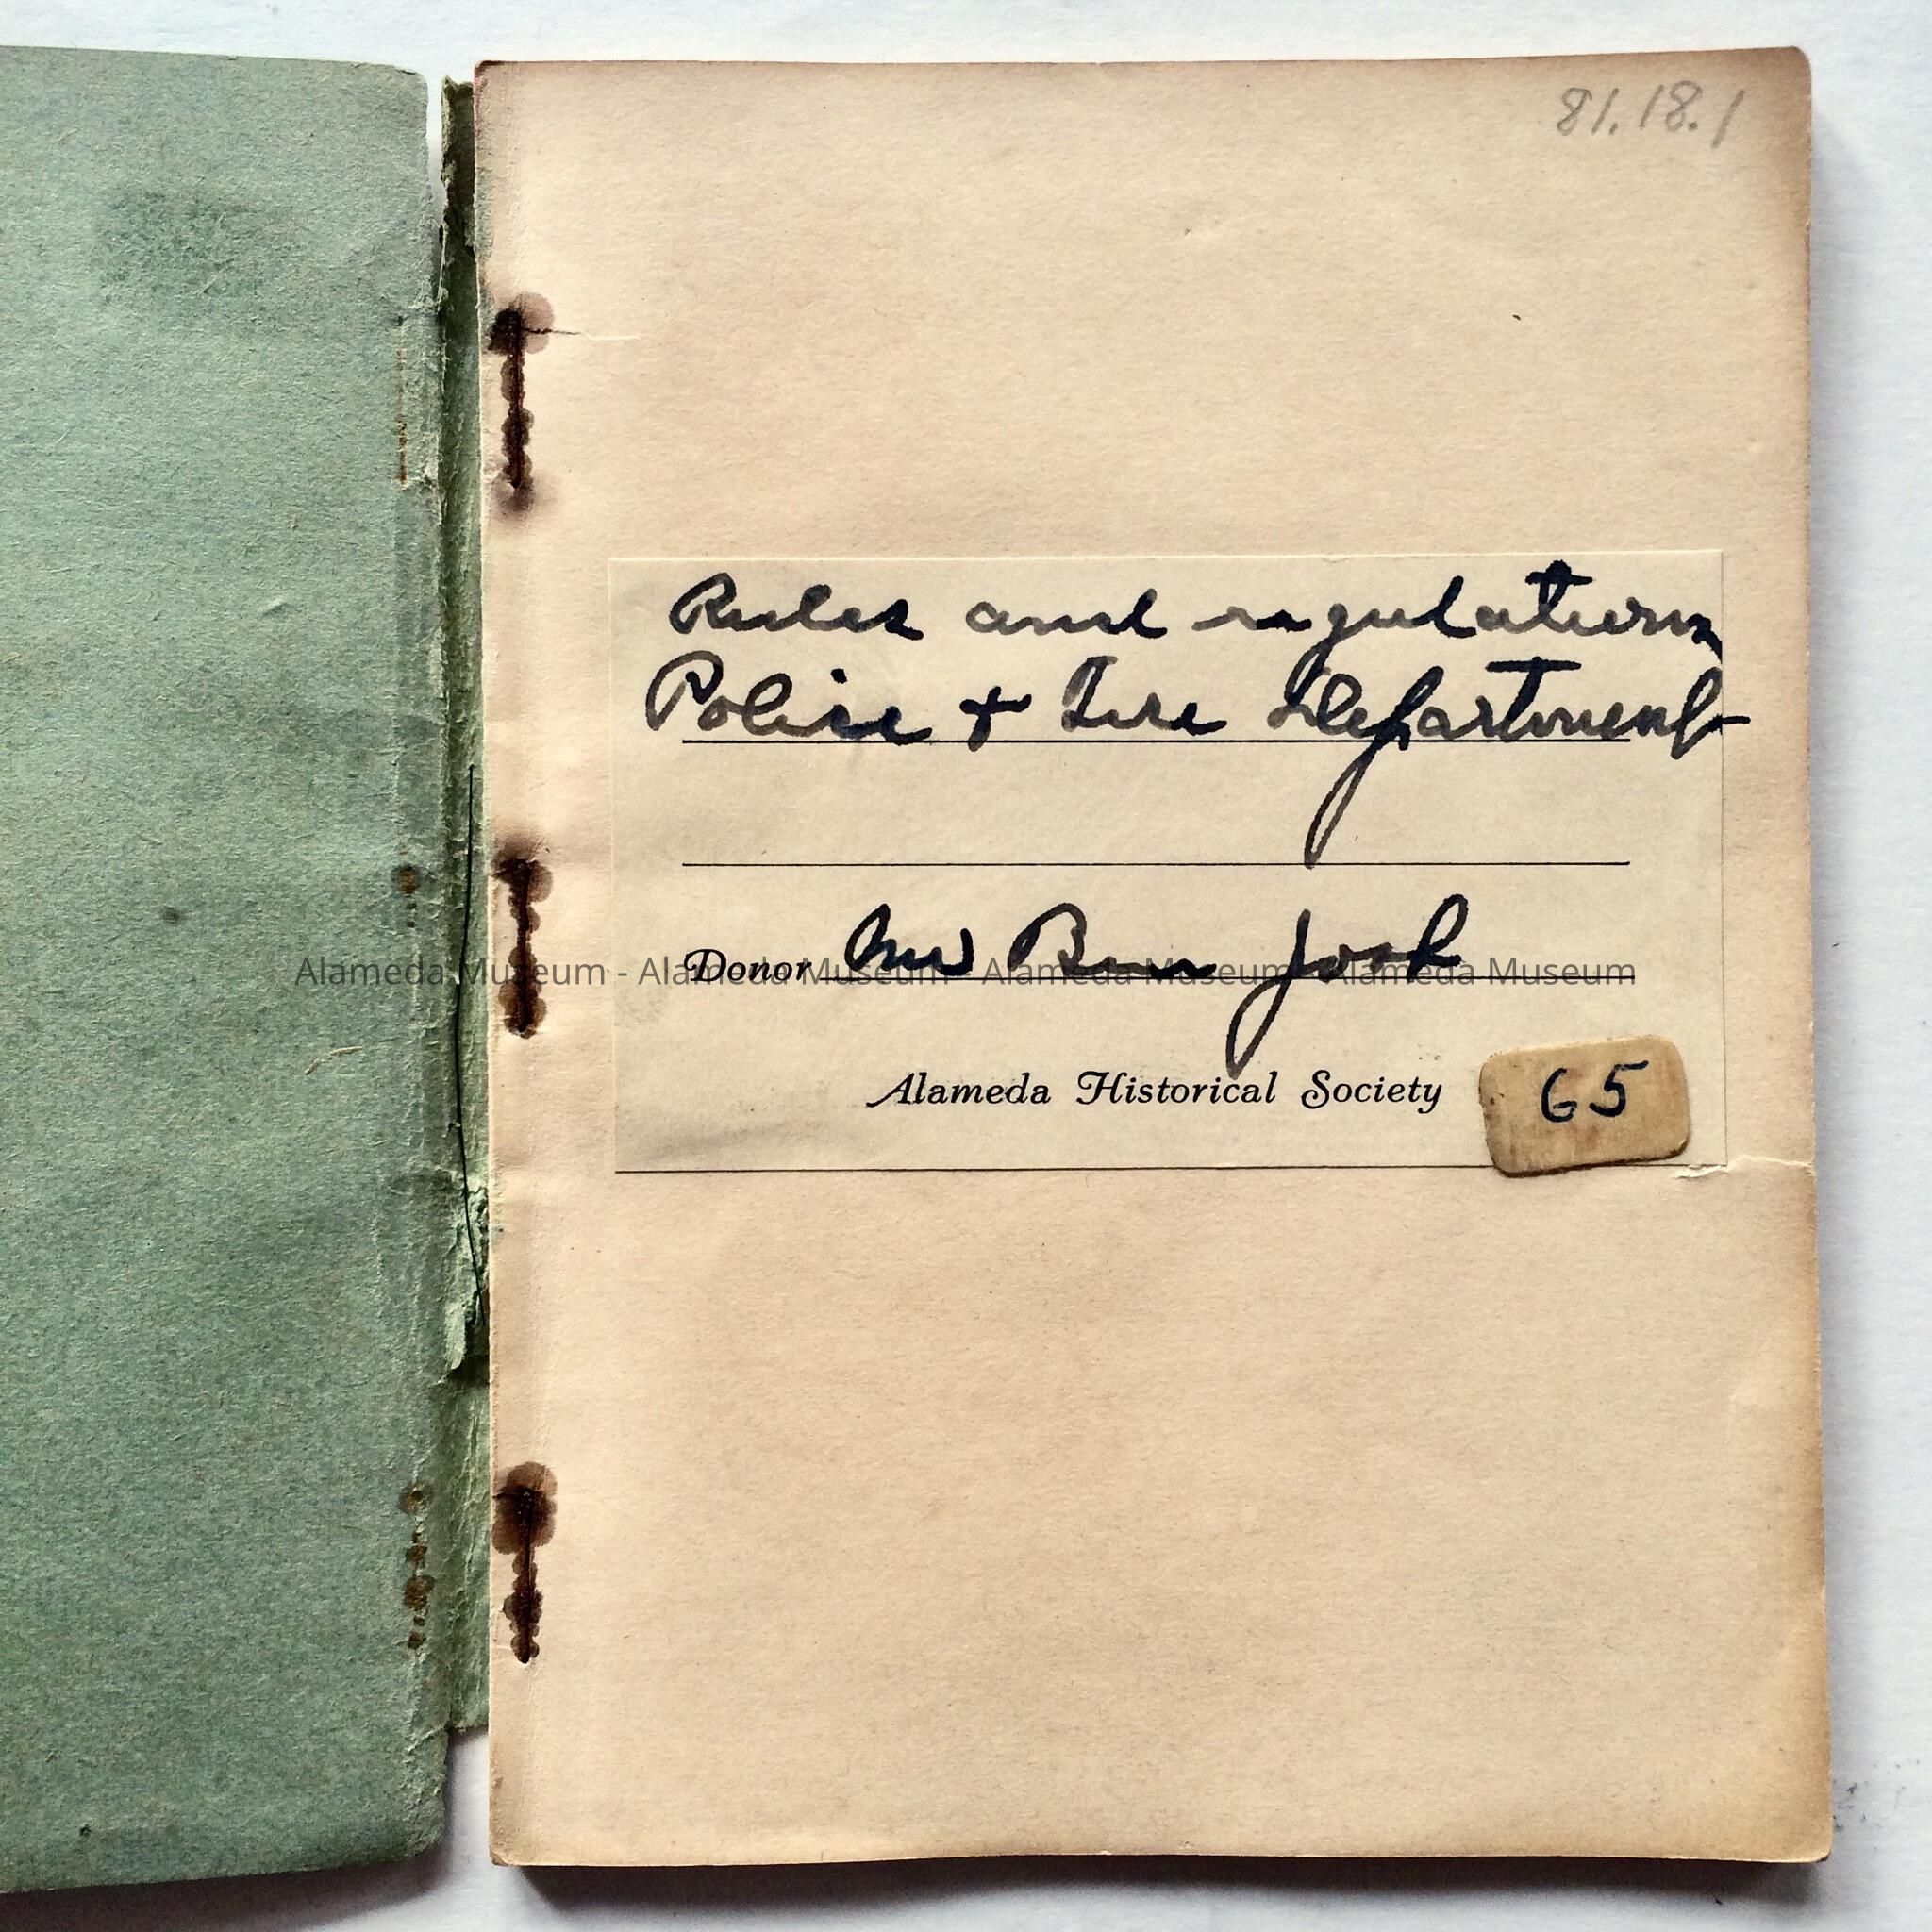 81.18.1
Rules and regulations
Police + Fire Department
Donor Mrs Ben
Alameda Museum - Alameda Museum - Alameda Museum - Alameda Museum
Alameda Historical Society
65